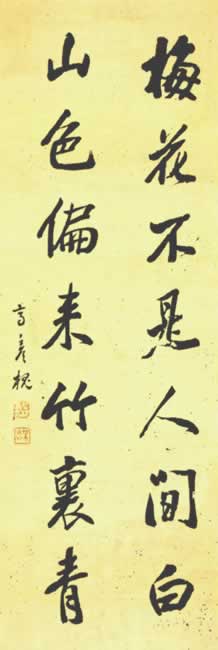 梅花不是人間白
山色偏来竹裏青
高彦槐